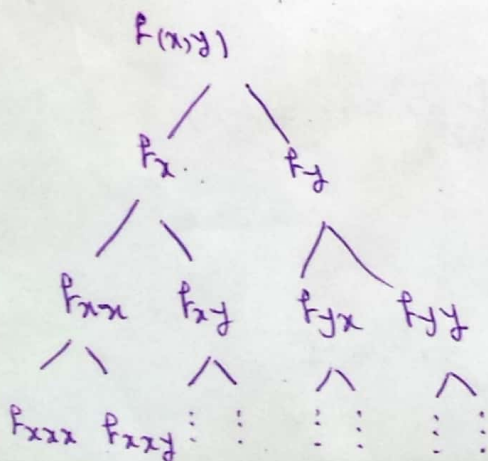 f(x,y)
fx fy
fxx fxy fyx fyy
fxxx fxxy